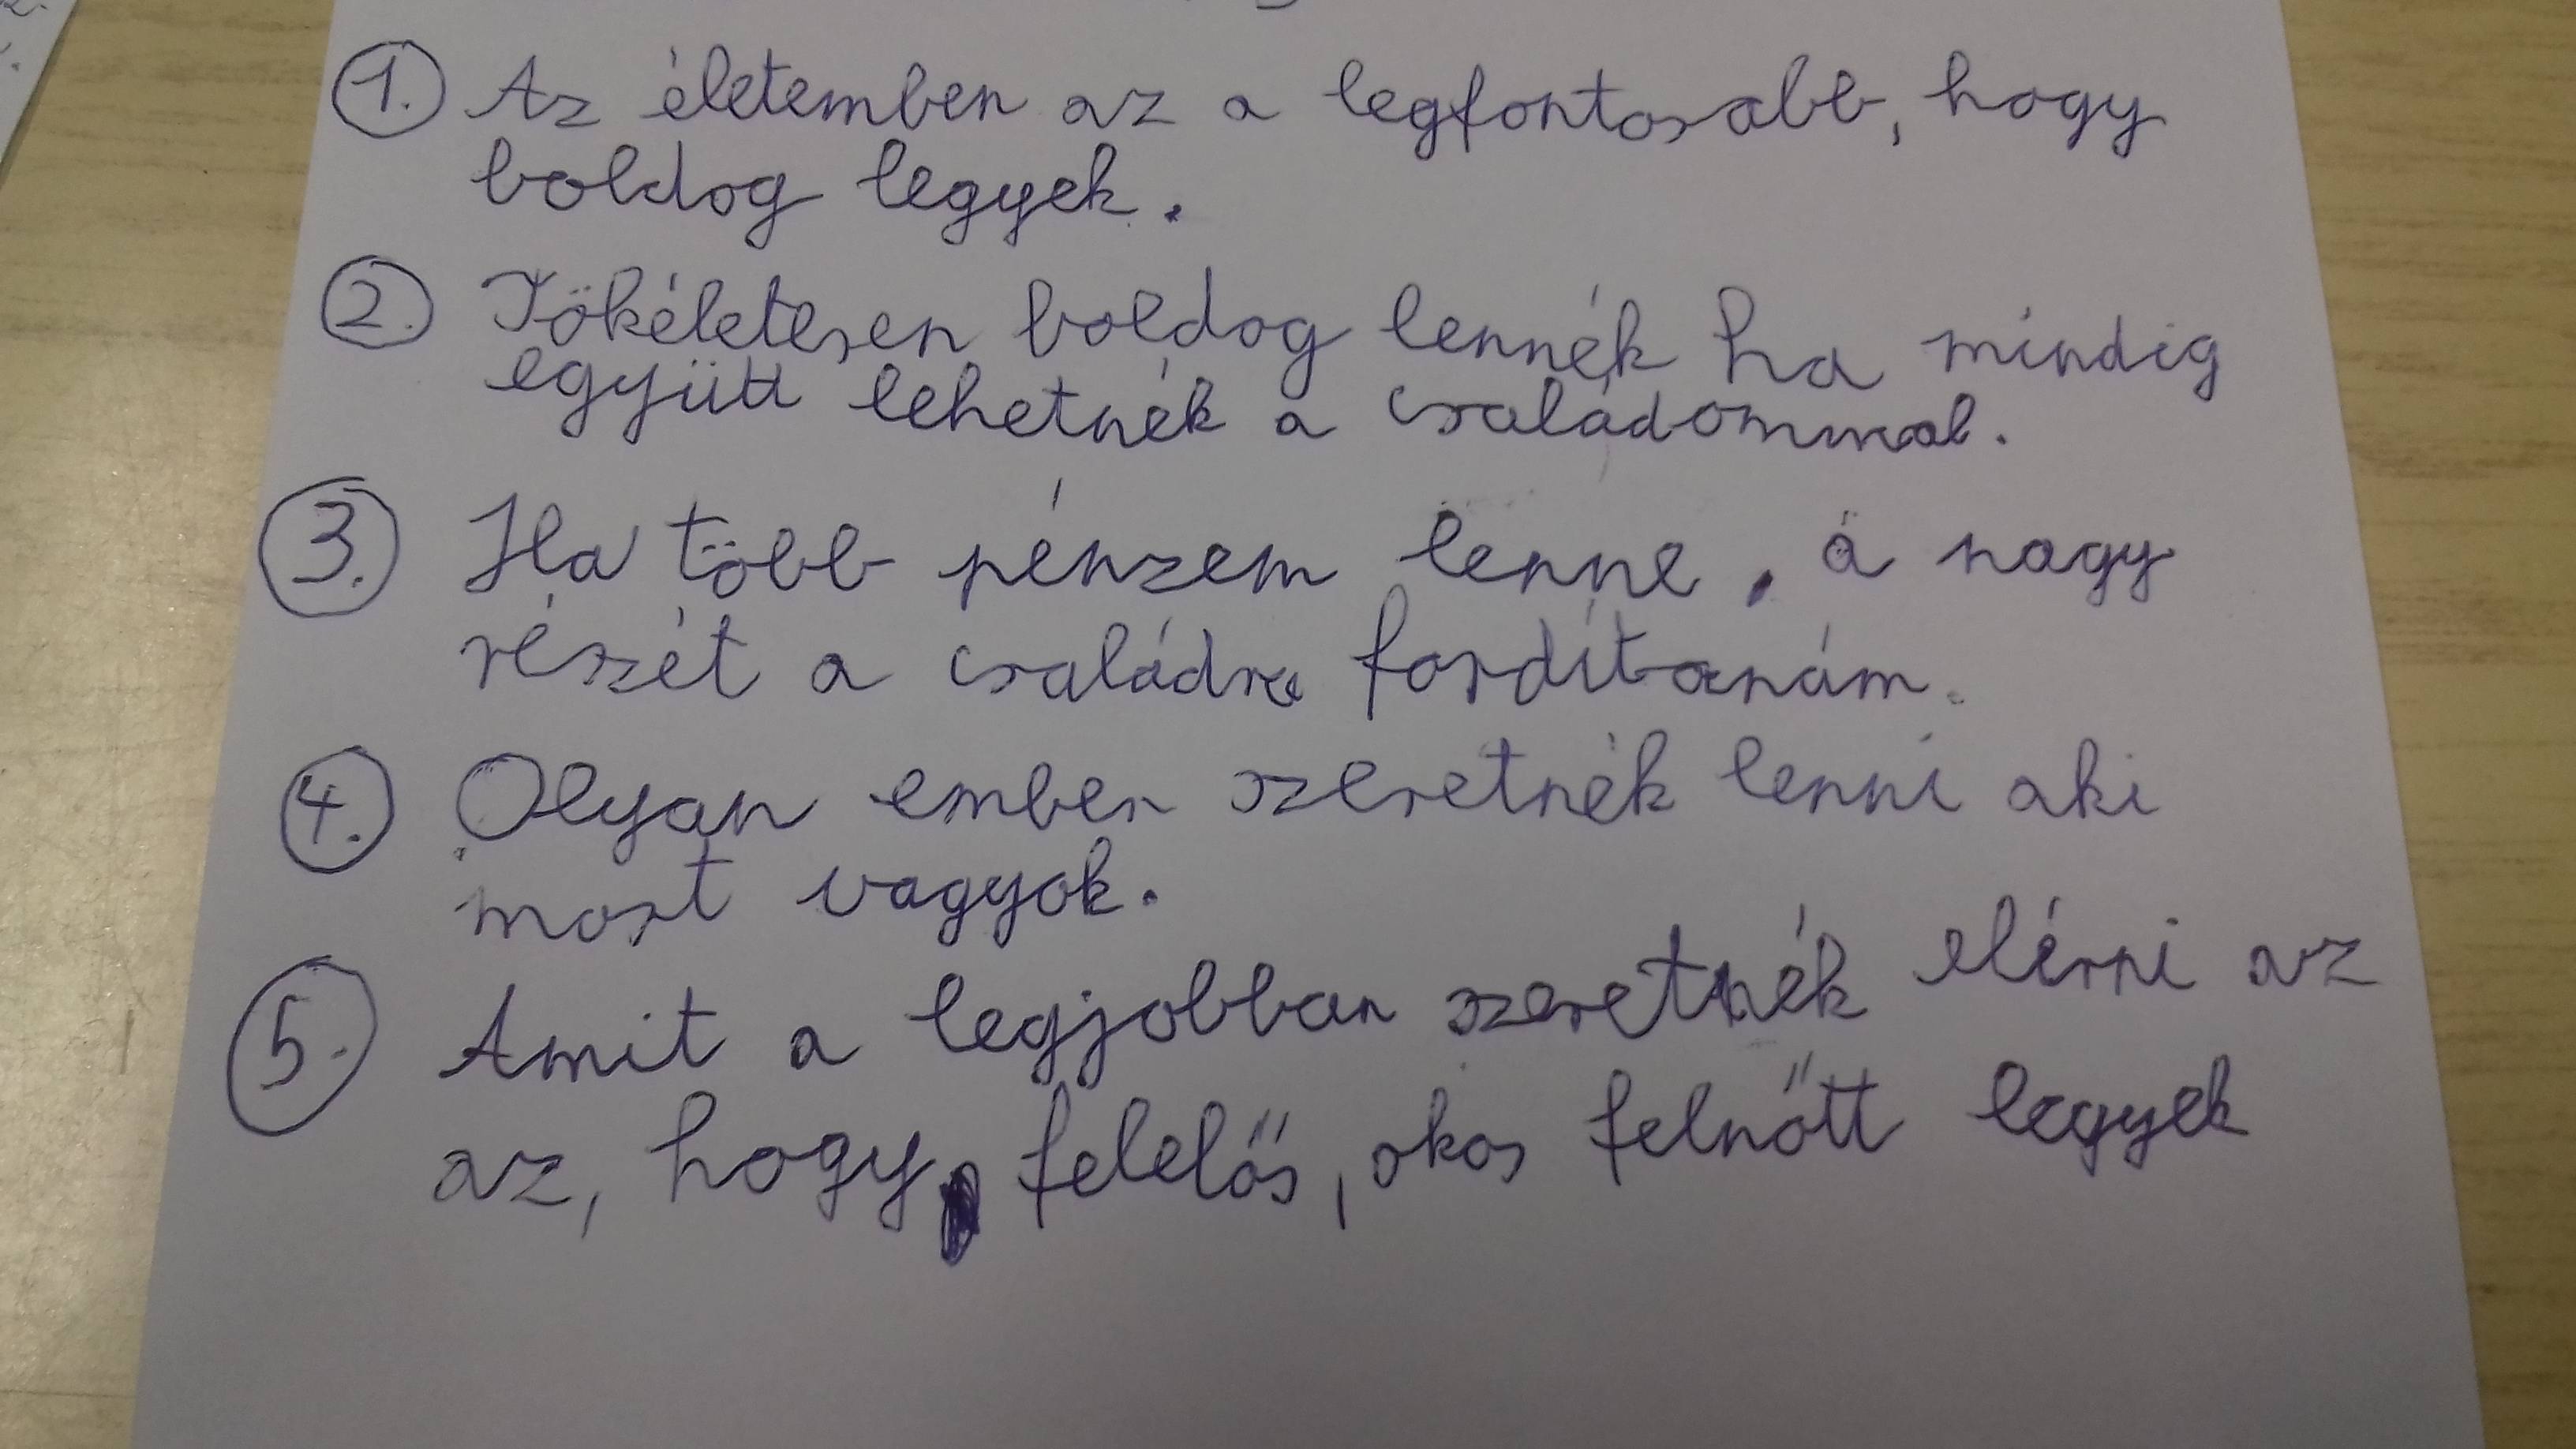 1. Az életemben az a legfontosabb, hogy
boldog legyek.
2. Tökéletesen boldog lennék ha mindig
együtt lehetnék a családommal.
3. Ha több pénzem lenne, á nagy
részét a családra fordítanám.
4. Olyan ember szeretnék lenni aki
most vagyok.
5. Amit a legjobban szeretnék elérni az
az, hogy felelős, okos felnőtt legyek